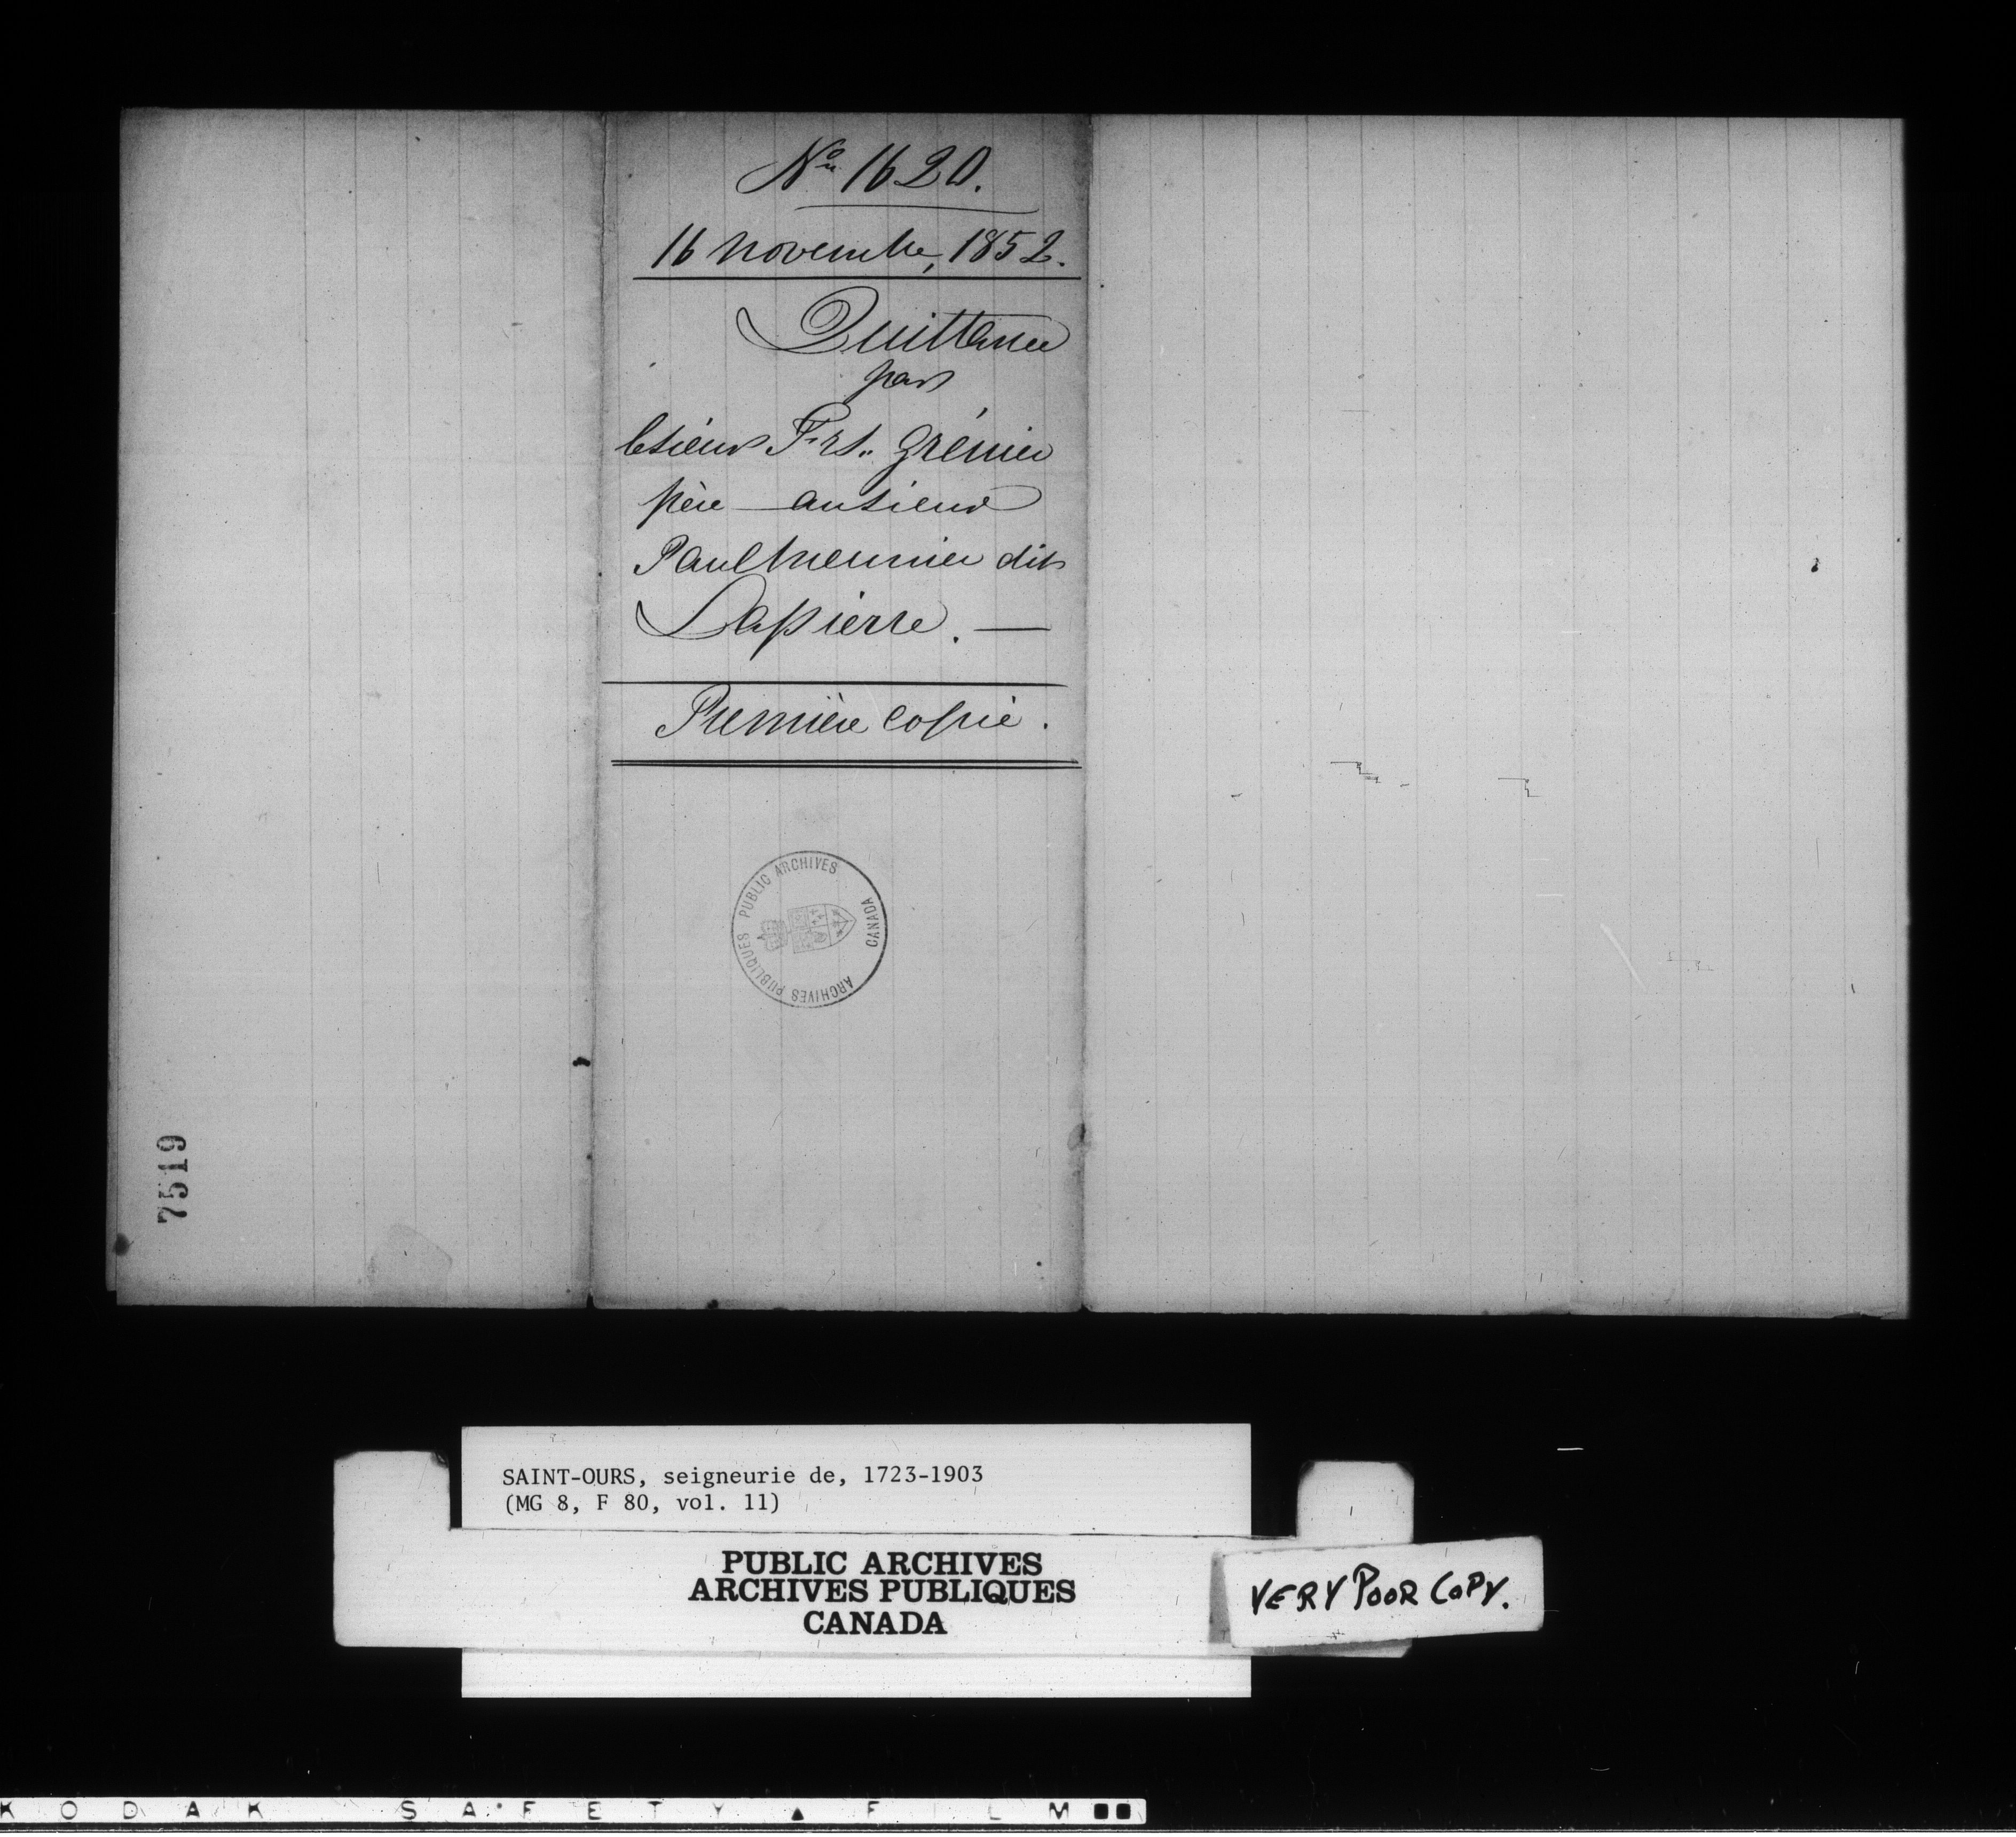 No. 1620.
16 novembre, 1852.
Quittance
par
le sieur Frs. Grénier
père — au sieur
Paul Meunier dit
Lapierre. —
Première copie.
PUBLIC ARCHIVES
CANADA
ARCHIVES PUBLIQUES
7519
SAINT-OURS, seigneurie de, 1723-1903
(MG 8, F 80, vol. 11)
PUBLIC ARCHIVES
ARCHIVES PUBLIQUES
CANADA
VERY POOR COPY.
KODAK SAFETY ▲ FILM ■■